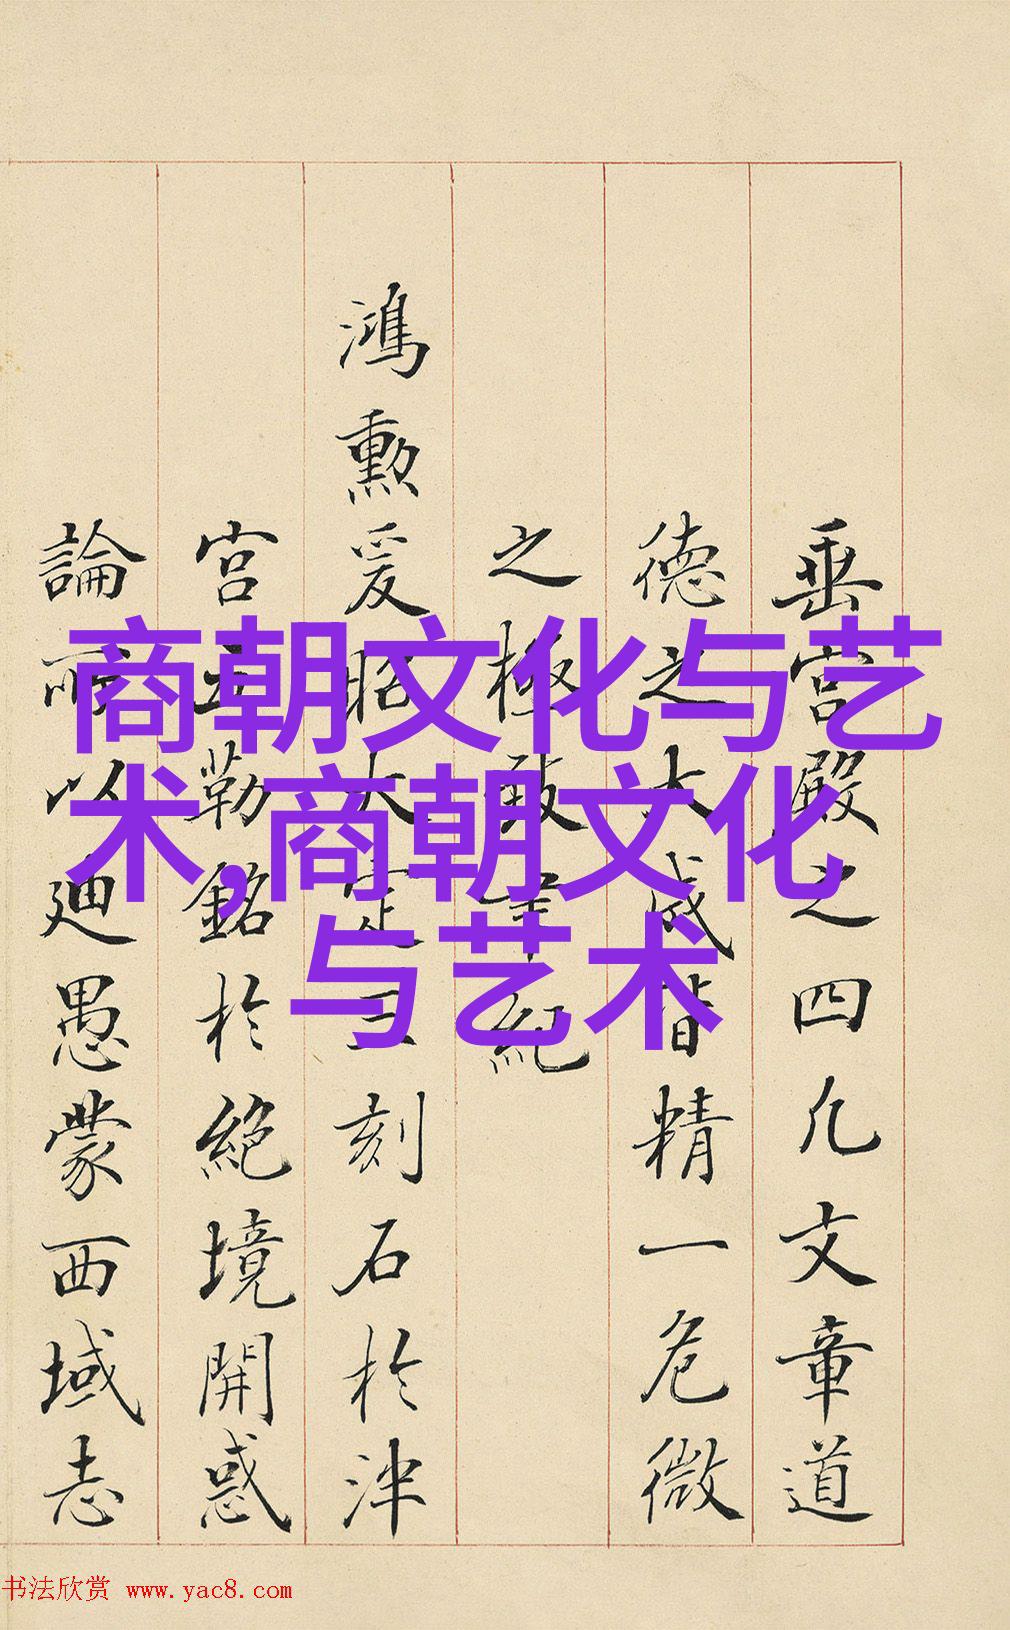 商朝文化与艺
术,商朝文化
与艺术
垂宫殿之四几文章道
德之大咸皆精一危微
之極紀
鴻勳爰昭大定刻石於津
宫五勒銘於絶境開惑
論所以廸愚蒙西域志
书法欣赏 www.yac8.com